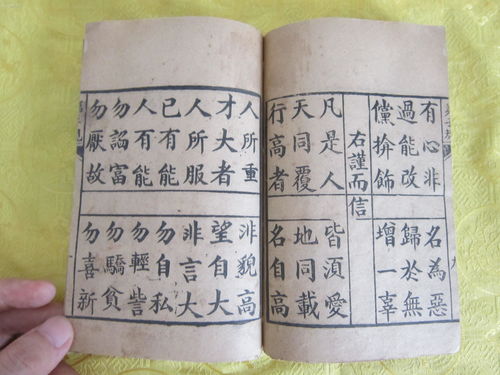 有心非 名為惡
過能改 歸於無
儻揜飾 增一辜
右謹而信
凡是人 皆須愛
天同覆 地同載
行高者 名自高
人所重 非貌高
才大者 望自大
人所服 非言大
己有能 勿自私
人有能 勿輕訾
勿諂富 勿驕貧
勿厭故 勿喜新